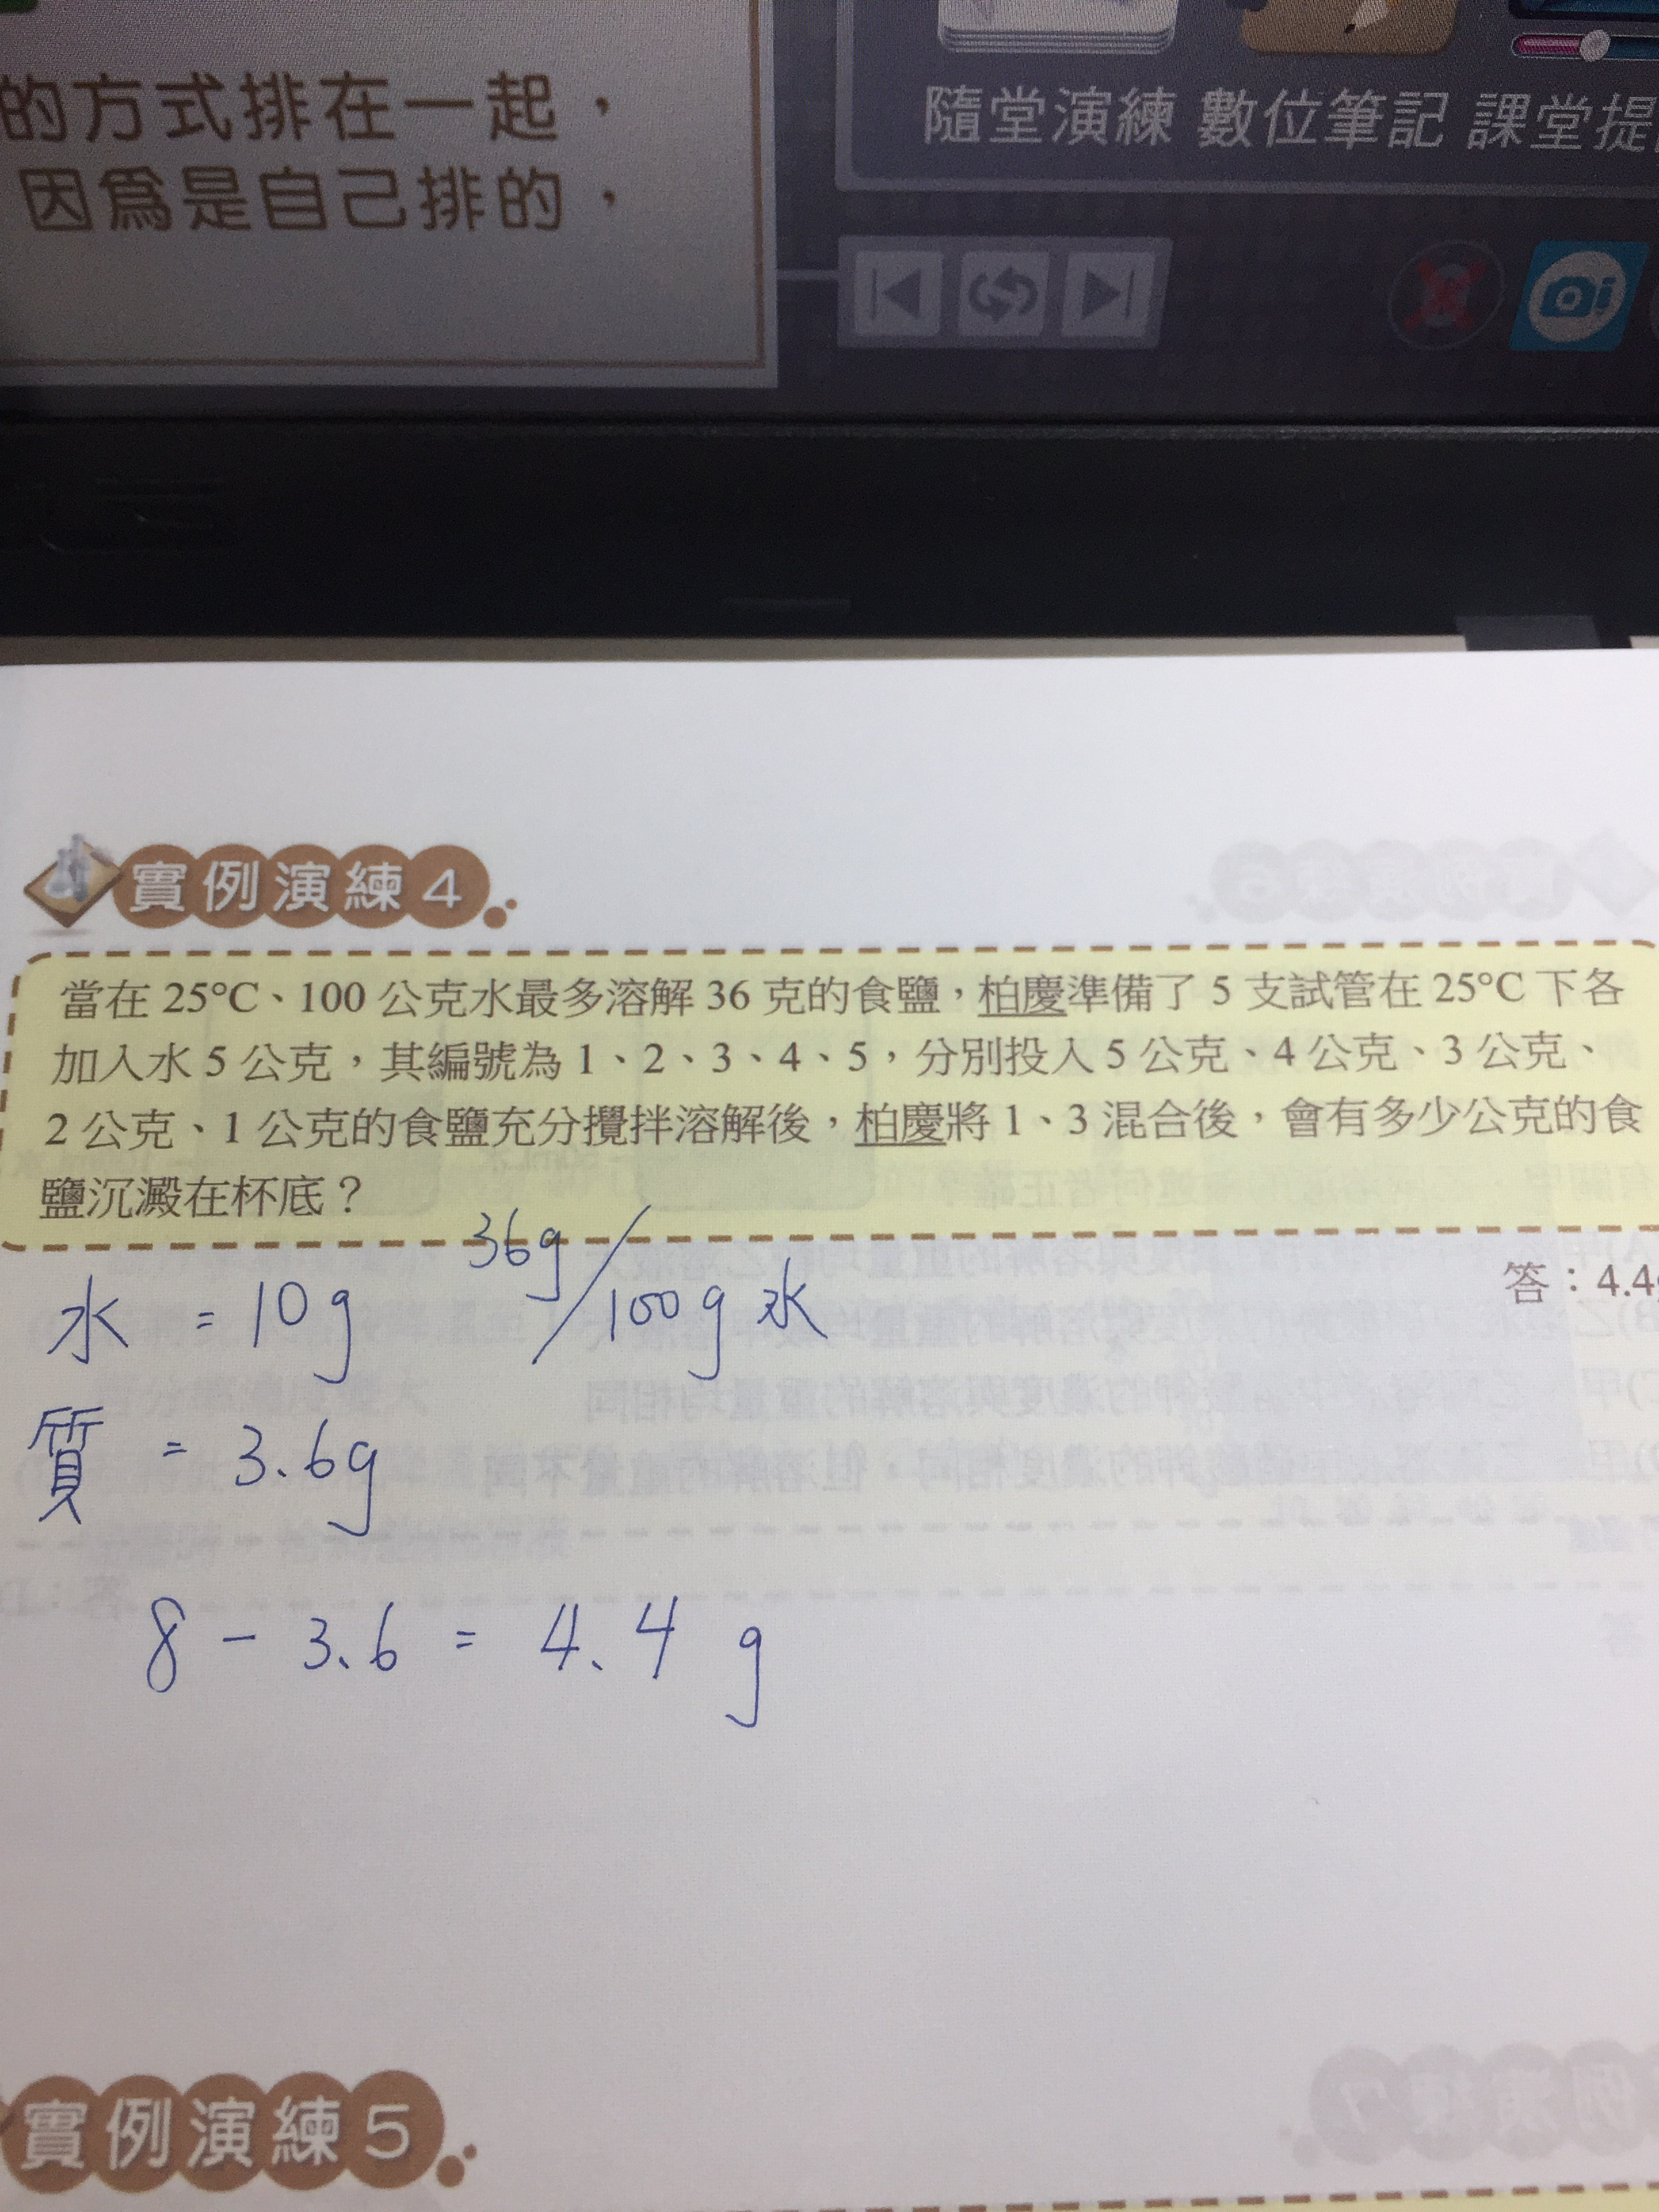 的方式排在一起，
因為是自己排的，
隨堂演練 數位筆記 課堂提
實例演練4
當在 25°C、100 公克水最多溶解 36 克的食鹽，柏慶準備了 5 支試管在 25°C 下各
加入水 5 公克，其編號為 1、2、3、4、5，分別投入 5 公克、4 公克、3 公克、
2 公克、1 公克的食鹽充分攪拌溶解後，柏慶將 1、3 混合後，會有多少公克的食
鹽沉澱在杯底？
答：4.4g
水 = 10g 36g/100g水
質 = 3.6g
8 - 3.6 = 4.4 g
實例演練5